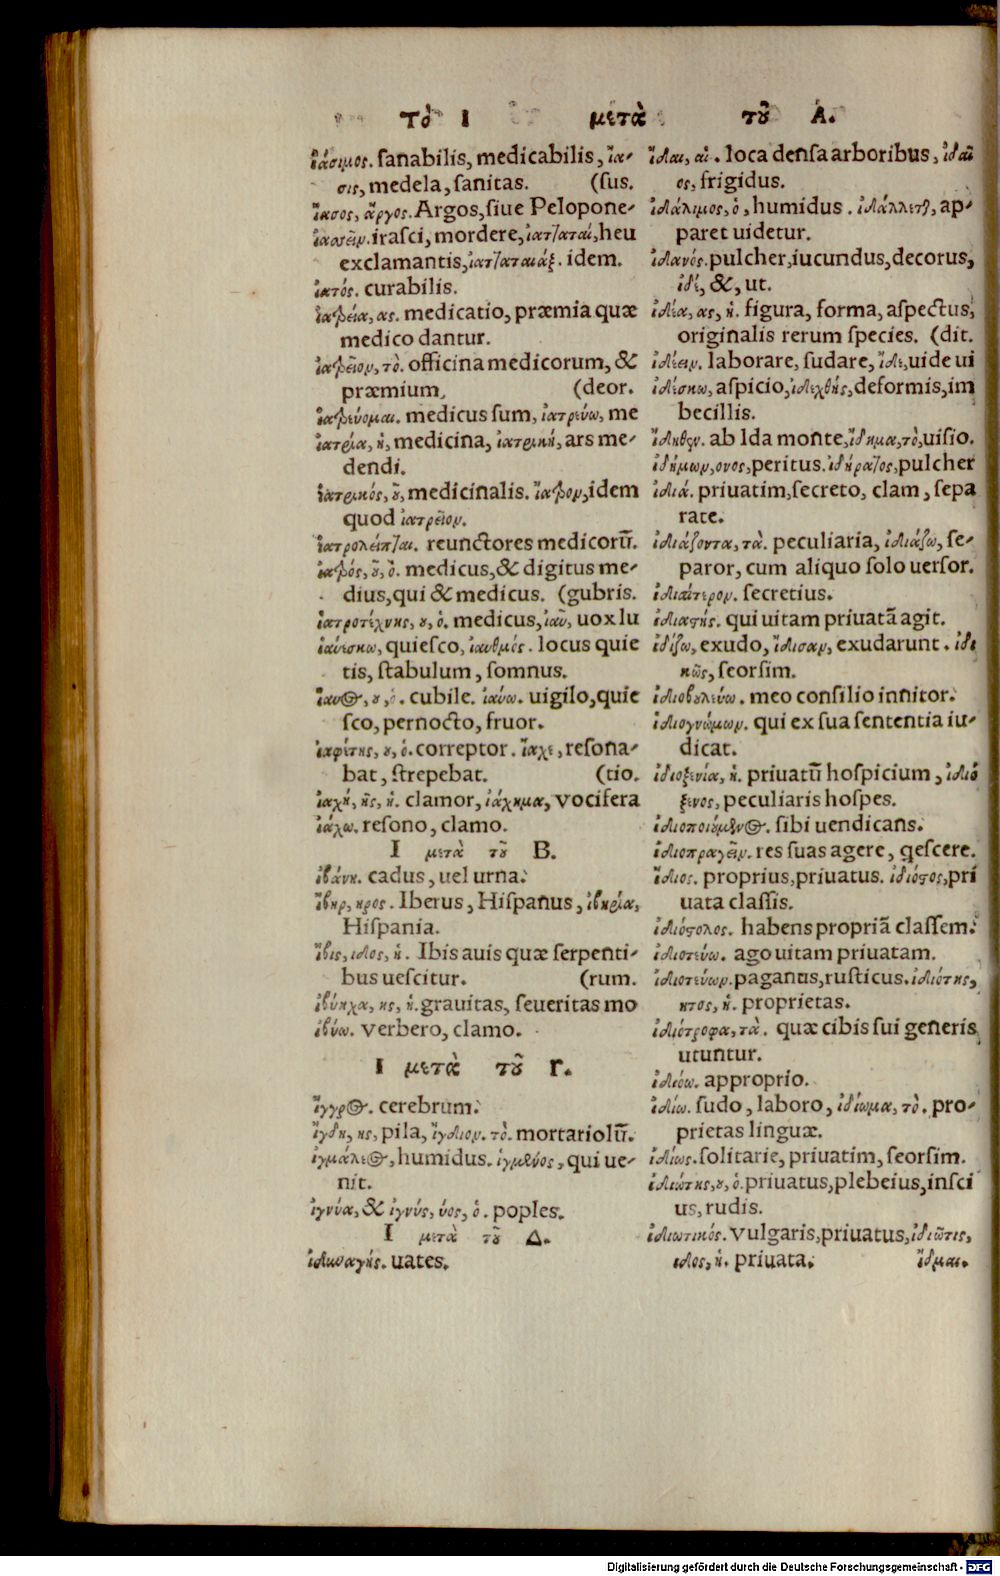 Τὸ Ι μετὰ τοῦ Α.
ἰάσιμος. sanabilis, medicabilis, ἴα-
σις, medela, sanitas. (sus.
ἴασος, ἄργος. Argos, siue Pelopone-
irasci, mordere, ἰατταταί, heu
exclamantis, ἰατταταιάξ. idem.
ἰατός. curabilis.
ἰατρεία, ας. medicatio, præmia quæ
medico dantur.
ἰατρεῖον, τὸ. officina medicorum, &
præmium. (deor.
ἰατρεύομαι. medicus sum, ἰατρεύω, me
ἰατρία, ἡ, medicina, ἰατρική, ars me-
dendi.
ἰατρικός, οῦ, medicinalis. ἴατρον, idem
quod ἰατρεῖον.
ἰατρολείπται. reunctores medicorũ.
ἰατρός, οῦ, ὁ. medicus, & digitus me-
dius, qui & medicus. (gubris.
ἰατροτέχνης, ου, ὁ. medicus, ἰαῦ, uox lu
ἰαύεσκω, quiesco, ἰαυθμός. locus quie
tis, stabulum, somnus.
ἴαυος, ου, ὁ. cubile. ἰαύω. uigilo, quie
sco, pernocto, fruor.
ἰαφέτης, ου, ὁ. correptor. ἴαχε, resona-
bat, strepebat. (tio.
ἰαχή, ῆς, ἡ. clamor, ἰάχημα, vocifera
ἰάχω. resono, clamo.
Ι μετὰ τοῦ Β.
ἰβάνη. cadus, uel urna.
ἴβηρ, ηρος. Iberus, Hispanus, ἰβηρία,
Hispania.
ἴβις, ιδος, ἡ. Ibis auis quæ serpenti-
bus uescitur. (rum.
ἰβύηχα, ης, ἡ. grauitas, seueritas mo
ἰβύω. verbero, clamo.
Ι μετὰ τοῦ Γ.
ἴγγρος. cerebrum.
ἴγδη, ης, pila, ἴγδιον. τὸ. mortariolũ.
ἰγμάλεος, humidus. ἰγμένος, qui ue-
nit.
ἰγνύα, & ἰγνύς, ύος, ὁ. poples.
Ι μετὰ τοῦ Δ.
uates.
ἴδαι, αἱ. loca densa arboribus, ἰδαῖ
ος, frigidus.
ἰδάλιμος, ὁ, humidus. ἰδάλλεται, ap-
paret uidetur.
ἰδανός. pulcher, iucundus, decorus,
ἰδέ, &, ut.
ἰδέα, ας, ἡ. figura, forma, aspectus,
originalis rerum species. (dit.
ἰδίειν. laborare, sudare, ἴδε, uide ui
ἰδέσκω, aspicio, ἰδεχθής, deformis, im
becillis.
ἴδηθεν. ab Ida monte, ἴδημα, τὸ, uisio.
ἰδήμων, ονος, peritus. ἰδήρατος, pulcher
ἰδιά. priuatim, secreto, clam, sepa
rate.
ἰδιάζοντα, τὰ. peculiaria, ἰδιάζω, se-
paror, cum aliquo solo uersor.
ἰδιαίτερον. secretius.
ἰδιαστής. qui uitam priuatã agit.
ἰδίζω, exudo, ἴδισαν, exudarunt. ἰδι
κῶς, seorsim.
ἰδιοβουλεύω. meo consilio innitor.
ἰδιογνώμων. qui ex sua sententia iu-
dicat.
ἰδιοξενία, ἡ. priuatũ hospicium, ἰδιό
ξενος, peculiaris hospes.
ἰδιοποιούμενος. sibi uendicans.
ἰδιοπραγεῖν. res suas agere, q̃escere.
ἴδιος. proprius, priuatus. ἰδιόστος, pri
uata classis.
ἰδιόστολος. habens propriã classem.
ἰδιοτεύω. ago uitam priuatam.
ἰδιοτεύων. paganus, rusticus. ἰδιότης,
ητος, ἡ. proprietas.
ἰδιότροφα, τὰ. quæ cibis sui generis
utuntur.
ἰδιόω. approprio.
ἰδίω. sudo, laboro, ἰδίωμα, τὸ. pro-
prietas linguæ.
ἰδίως. solitarie, priuatim, seorsim.
ἰδιώτης, ου, ὁ. priuatus, plebeius, insci
us, rudis.
ἰδιωτικός. vulgaris, priuatus, ἰδιῶτις,
ιδος, ἡ. priuata. ἴδμαι.
Digitalisierung gefördert durch die Deutsche Forschungsgemeinschaft - DFG